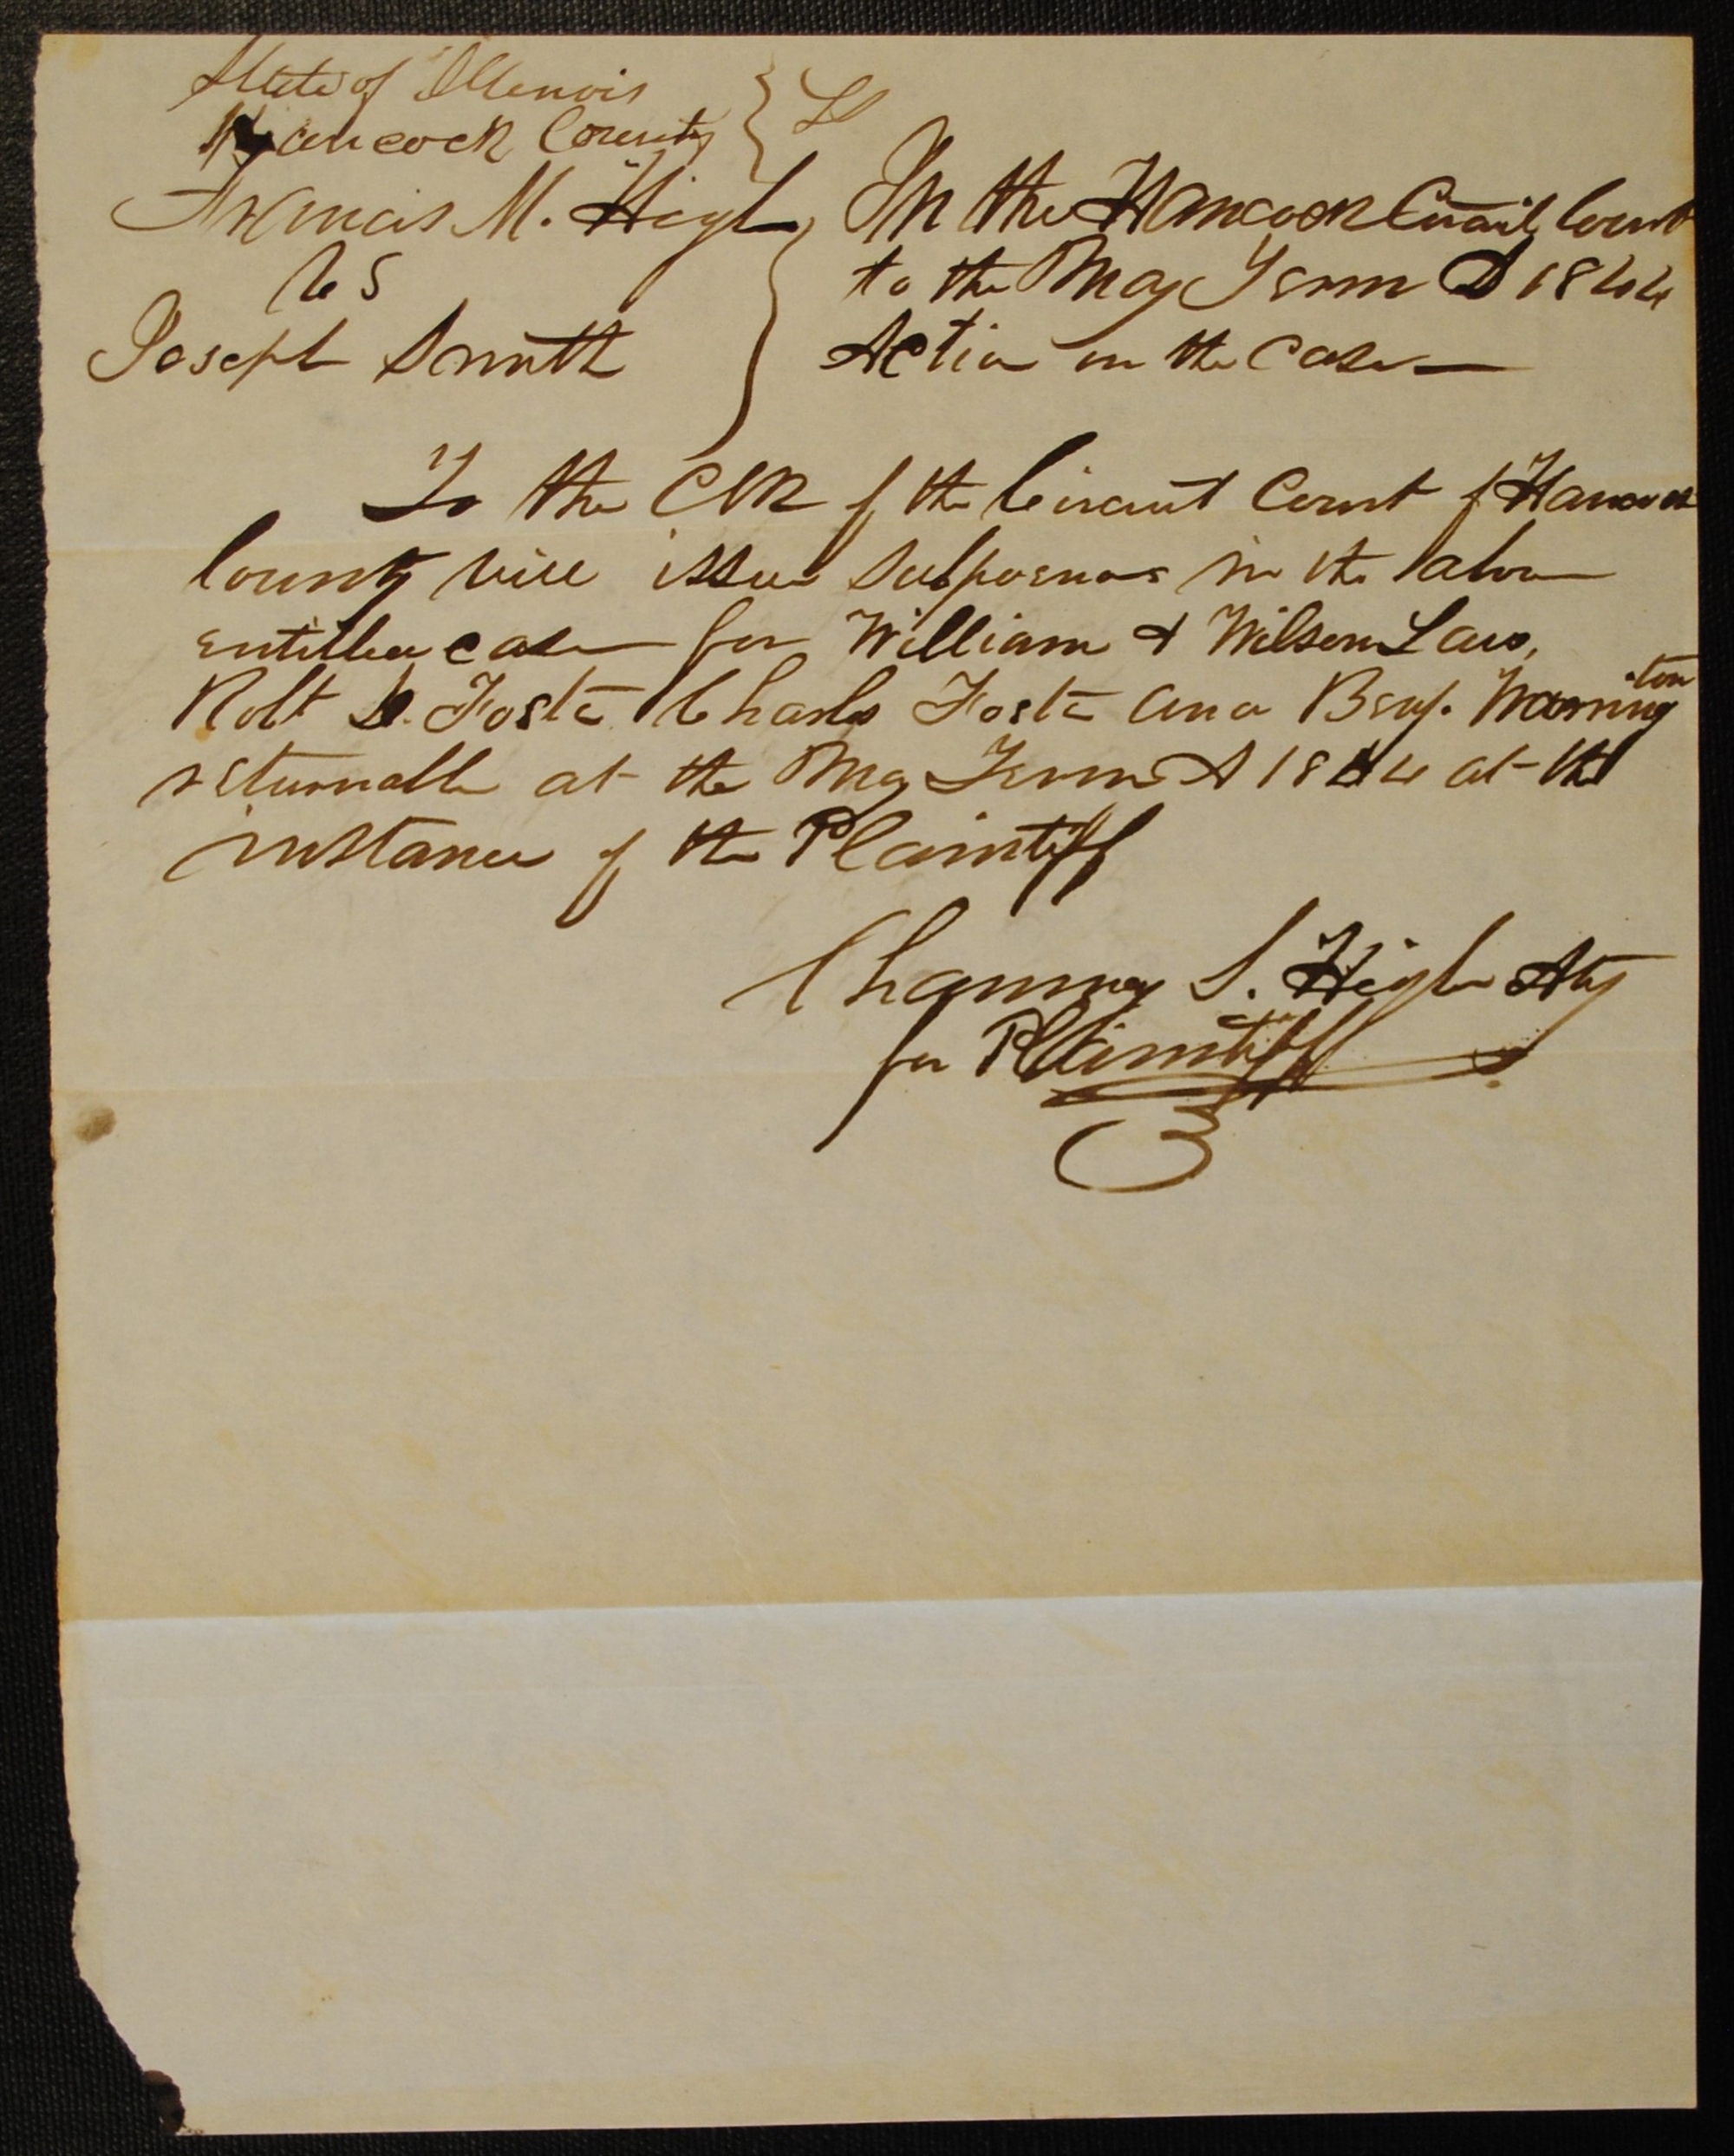 State of Illinois } SS
Hancock County
Francis M. Higbe } In the Hancock Circuit Court
vs to the May Term AD 1844
Joseph Smith Action on the Case
To the Clk of the Circuit Court of Hancock
County will issue Subpoenas in the above
entitled case for William & Wilson Law,
Robt D. Foster Charles Foster and Benj. Warrington
returnable at the May Term AD 1844 at the
instance of the Plaintiff
Chauncey L. Higbe Atty
for Plaintiff